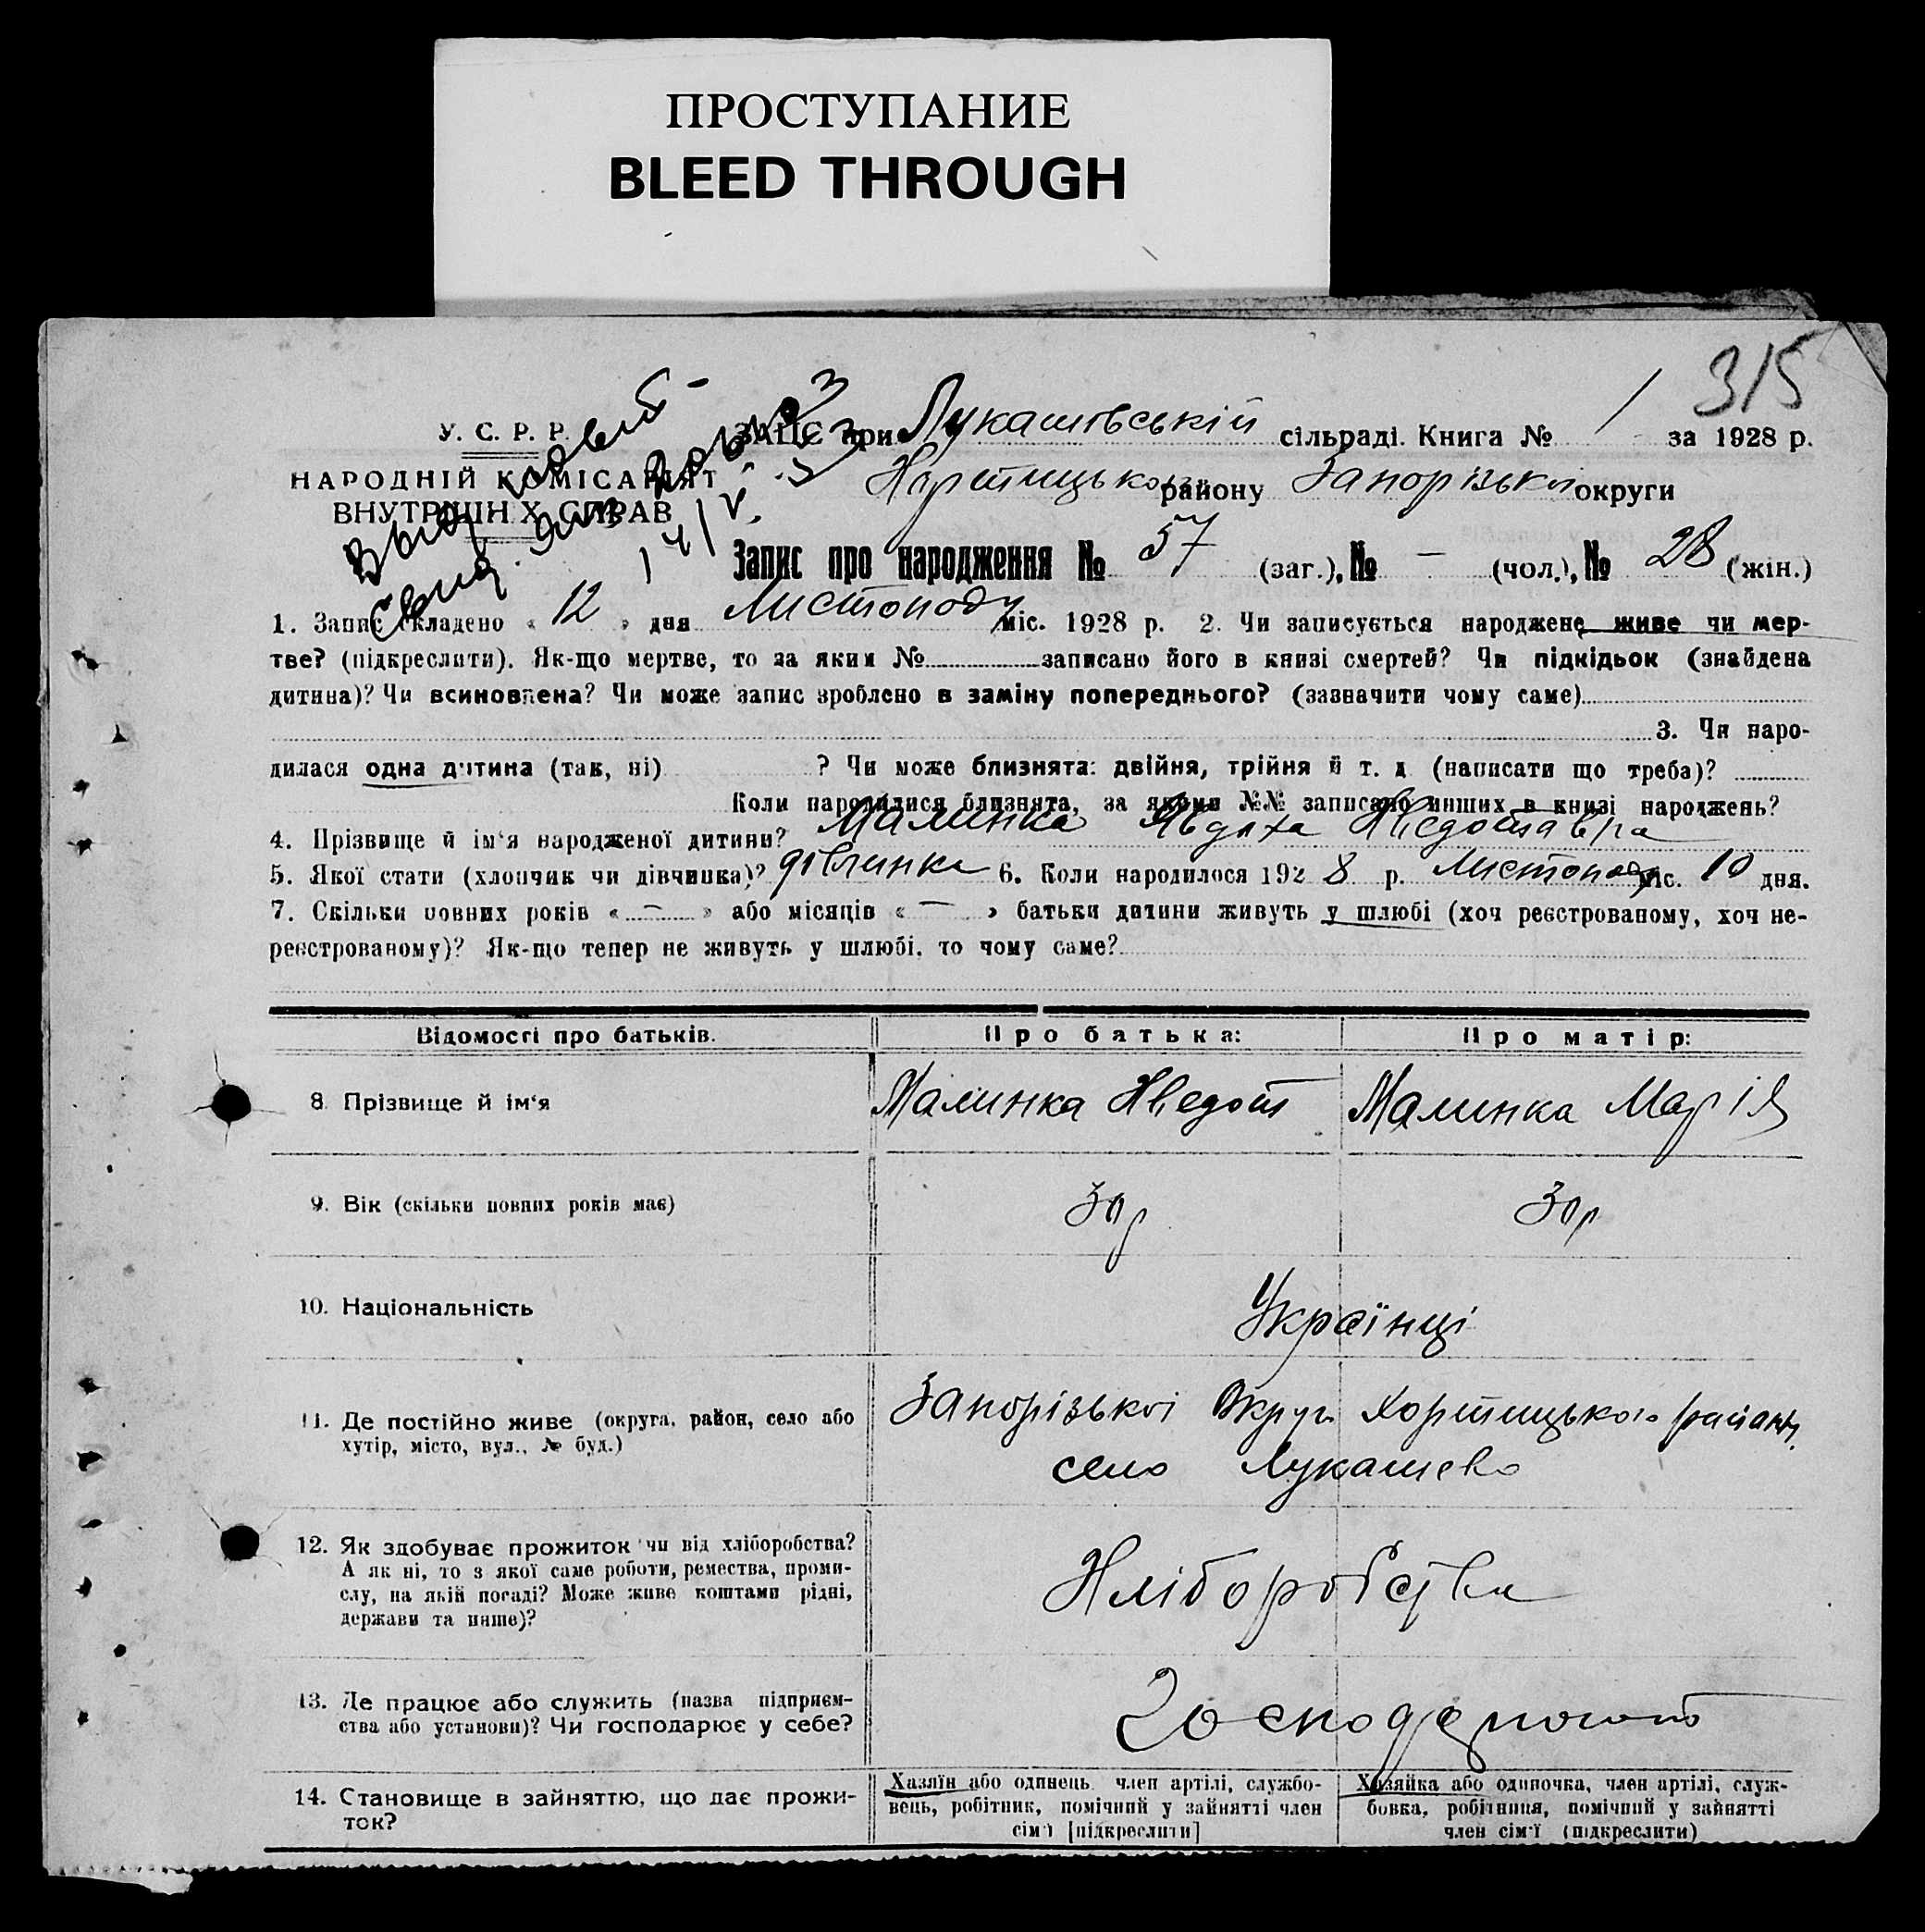 ПРОСТУПАНИЕ
BLEED THROUGH
315
У. С. Р. Р.
НАРОДНІЙ КОМІСАРІЯТ
ВНУТРІШНІХ СПРАВ
ЗАПИС при Лукашівській сільраді. Книга № 1 за 1928 р.
Хортицького району Запорізької округи
Запис про народження № 57 (заг.), № — (чол.), № 28 (жін.)
1. Запис складено « 12 » дня Листопаду міс. 1928 р. 2. Чи записується народжене живе чи мер-
тве? (підкреслити). Як-що мертве, то за яким № записано його в книзі смертей? Чи підкідьок (знайдена
дитина)? Чи всиновлена? Чи може запис зроблено в заміну попереднього? (зазначити чому саме)
3. Чи наро-
дилася одна дитина (так, ні) ? Чи може близнята: двійня, трійня й т. д. (написати що треба)?
Коли народилися близнята, за якими №№ записано инших в книзі народжень?
4. Прізвище й ім'я народженої дитини? Малинка Явдоха
5. Якої стати (хлопчик чи дівчинка)? дівчинка 6. Коли народилося 1928 р. Листопаду міс. 10 дня.
7. Скільки повних років « — » або місяців « — » батьки дитини живуть у шлюбі (хоч реєстрованому, хоч не-
реєстрованому)? Як-що тепер не живуть у шлюбі, то чому саме?
Відомості про батьків. Про батька: Про матір:
8. Прізвище й ім'я Малинка Хведот Малинка Марія
9. Вік (скільки повних років має) 30 р 30 р
10. Національність Українці
11. Де постійно живе (округа, район, село або
хутір, місто, вул., № буд.)
Запорізької Округи Хортицького району,
село Лукашево
12. Як здобуває прожиток чи від хліборобства?
А як ні, то з якої саме роботи, ремества, проми-
слу, на якій посаді? Може живе коштами рідні,
держави та инше)?
Хліборобства
13. Де працює або служить (назва підприєм-
ства або установи)? Чи господарює у себе?
14. Становище в зайняттю, що дає прожи-
ток?
Хазяїн або одинець, член артілі, службо-
вець, робітник, помічний у зайнятті член
сім'ї [підкреслити]
Хазяйка або одиночка, член артілі, служ-
бовка, робітниця, помічний у зайнятті
член сім'ї (підкреслити)